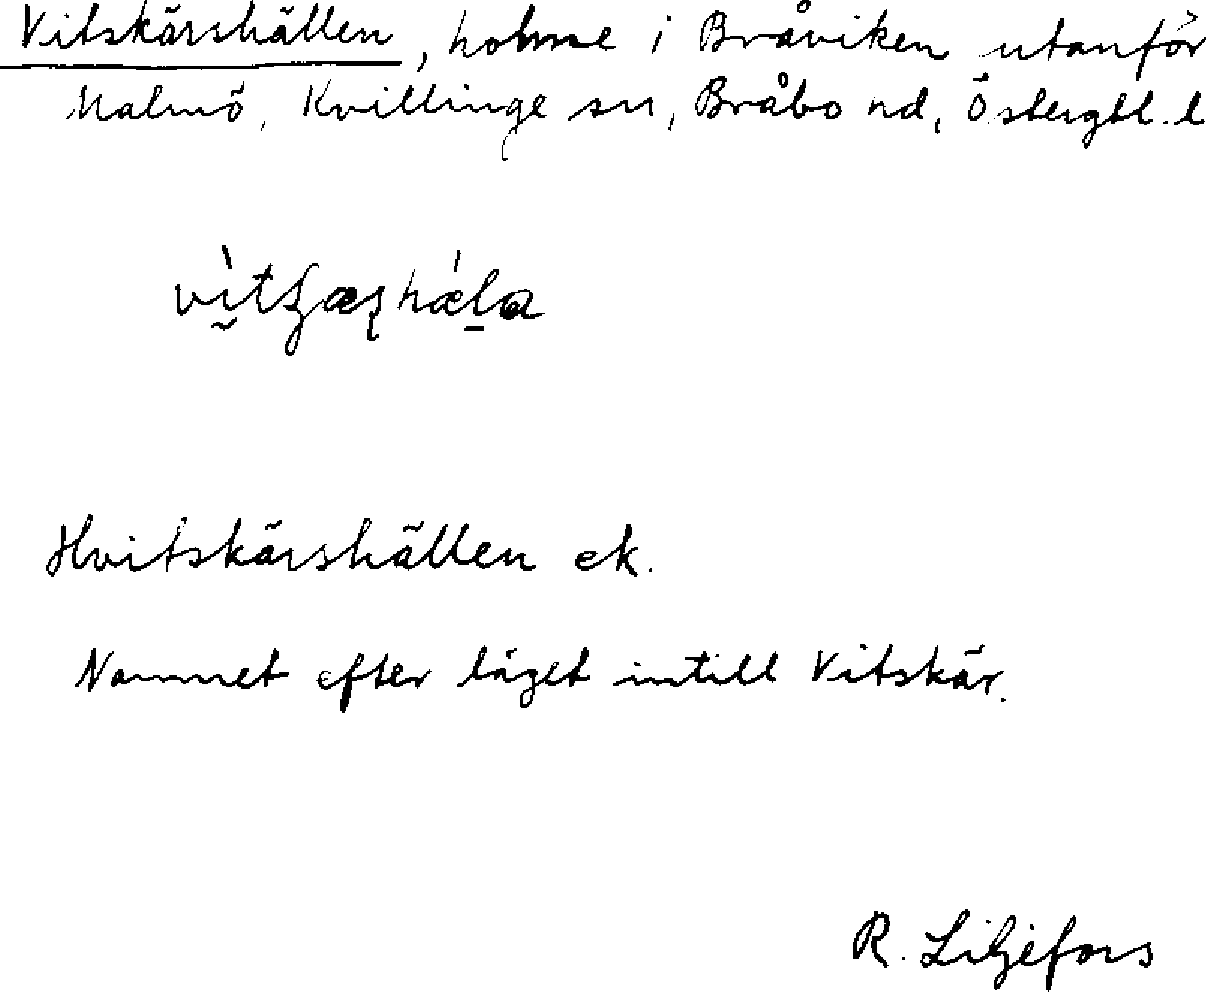 Vitskärshällen, holme i Bråviken utanför
Malmö, Kvillinge sn, Bråbo hd, Östergtl. l
Hvitskärshällen ek.
Namnet efter läget intill Vitskär.
R. Liljefors